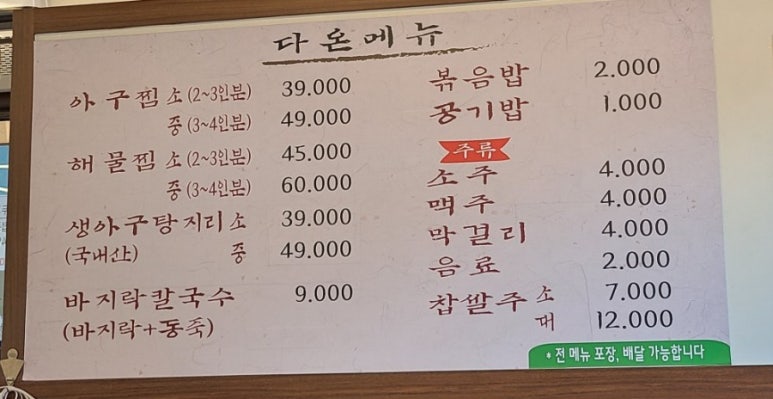 다온메뉴
아구찜 소(2~3인분) 39.000
중(3~4인분) 49.000
해물찜 소(2~3인분) 45.000
중(3~4인분) 60.000
생아구탕지리 소 39.000
(국내산) 중 49.000
바지락칼국수 9.000
(바지락+동죽)
볶음밥 2.000
공기밥 1.000
주류
소주 4.000
맥주 4.000
막걸리 4.000
음료 2.000
찹쌀주 소 7.000
대 12.000
*전 메뉴 포장, 배달 가능합니다